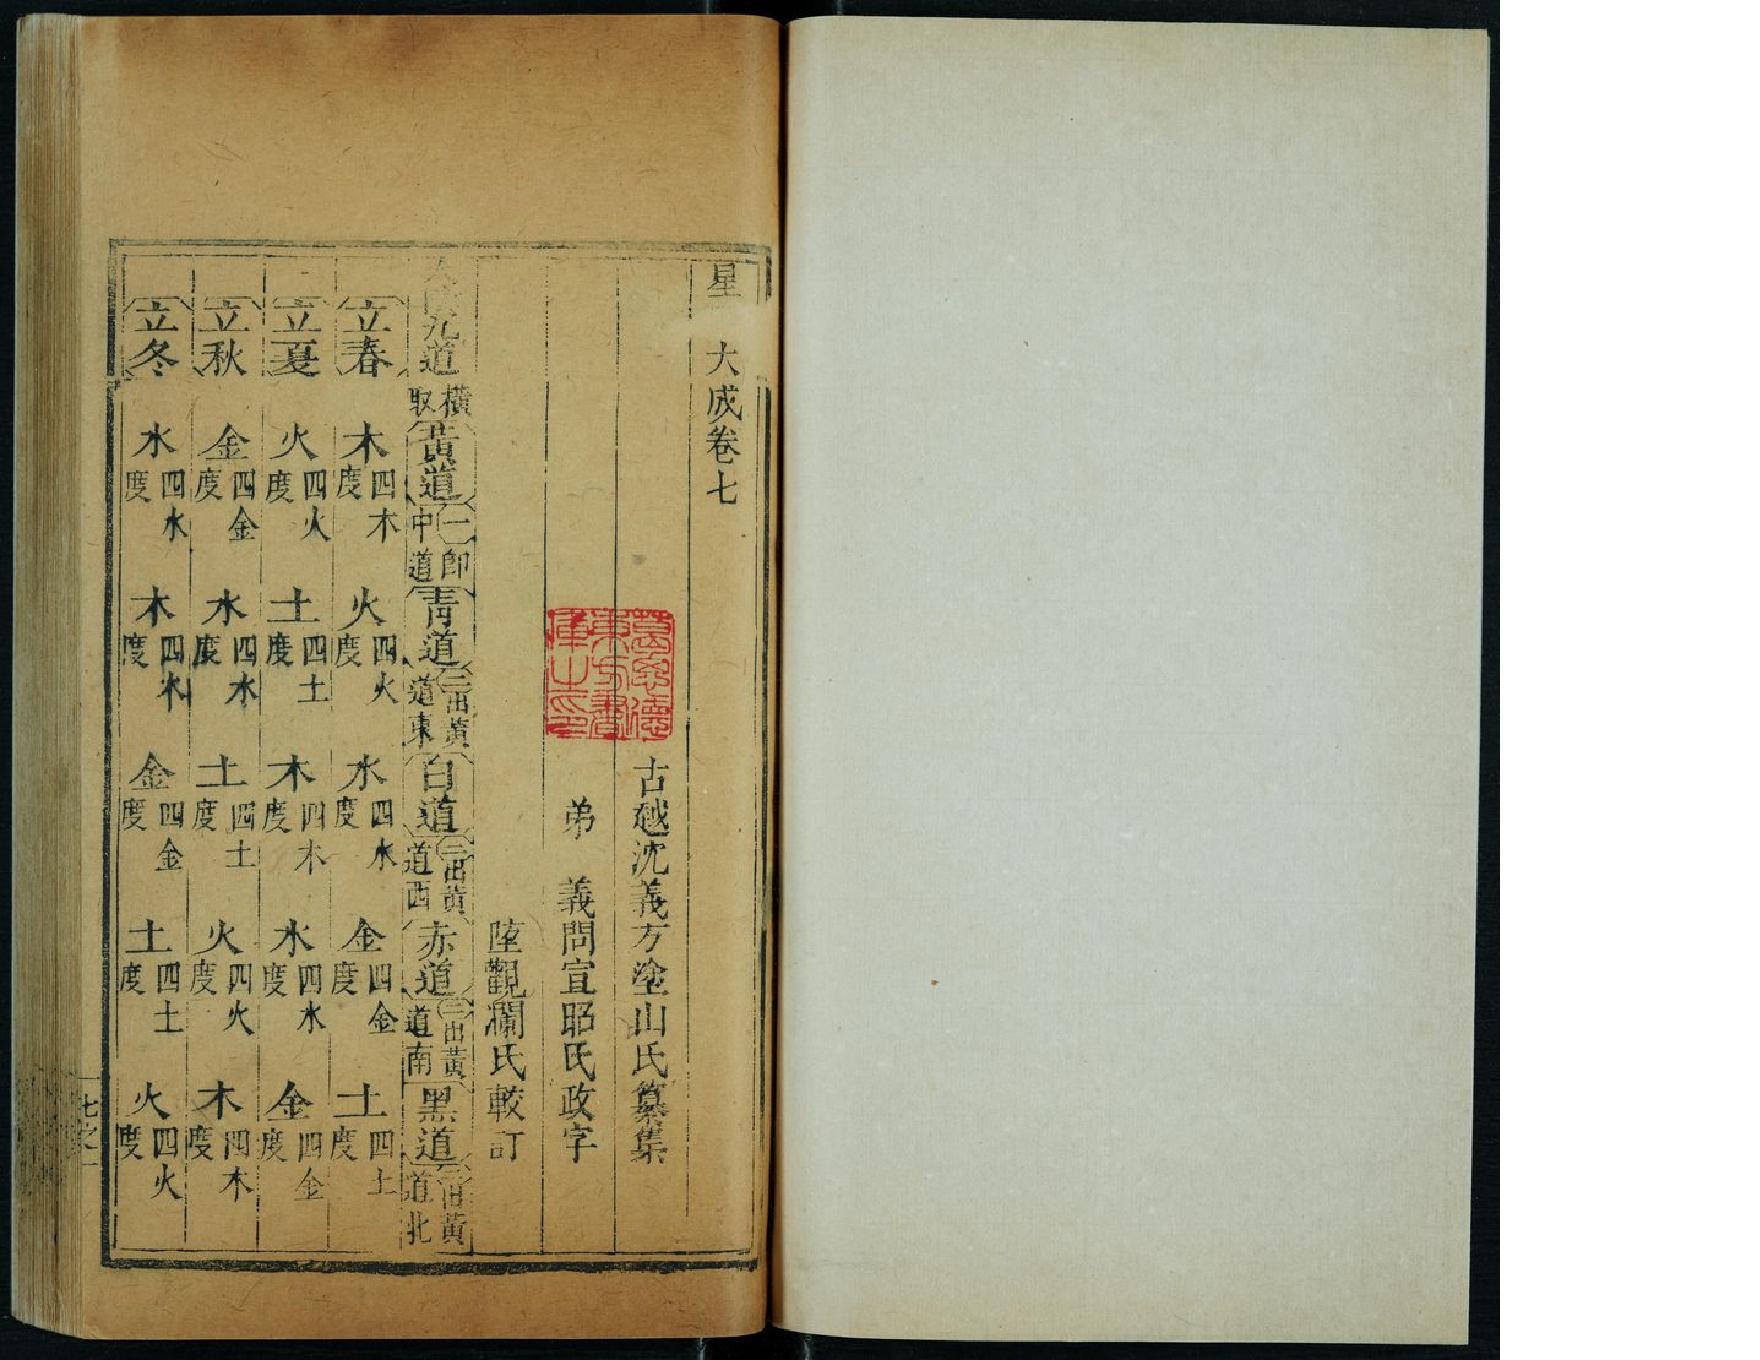 星 大成卷七
葛思德東方書庫之印
古越沈義方塗山氏纂集
弟 義問宣昭氏政字
陸觀瀾氏較訂
九道 橫取 黃道 一即中道 青道 二出黃道東 白道 二出黃道西 赤道 二出黃道南 黑道 二出黃道北
立春 木 四木度 火 四火度 水 四水度 金 四金度 土 四土度
立夏 火 四火度 土 四土度 木 四木度 水 四水度 金 四金度
立秋 金 四金度 水 四水度 土 四土度 火 四火度 木 四木度
立冬 水 四水度 木 四木度 金 四金度 土 四土度 火 四火度